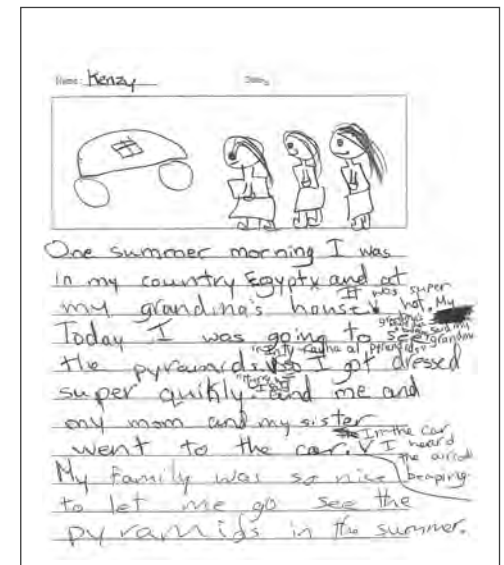 Name: Kenzy
One summer morning I was
in my country Egyptx and at
my grandma's house. It was super hot. My
Today I was going to see
the pyramids. so I got dressed
super quikly and me and
my mom and my sister
went to the car. In the car
I heard
the aircod
beaping.
My family was so nice
to let me go see the
pyramids in the summer.